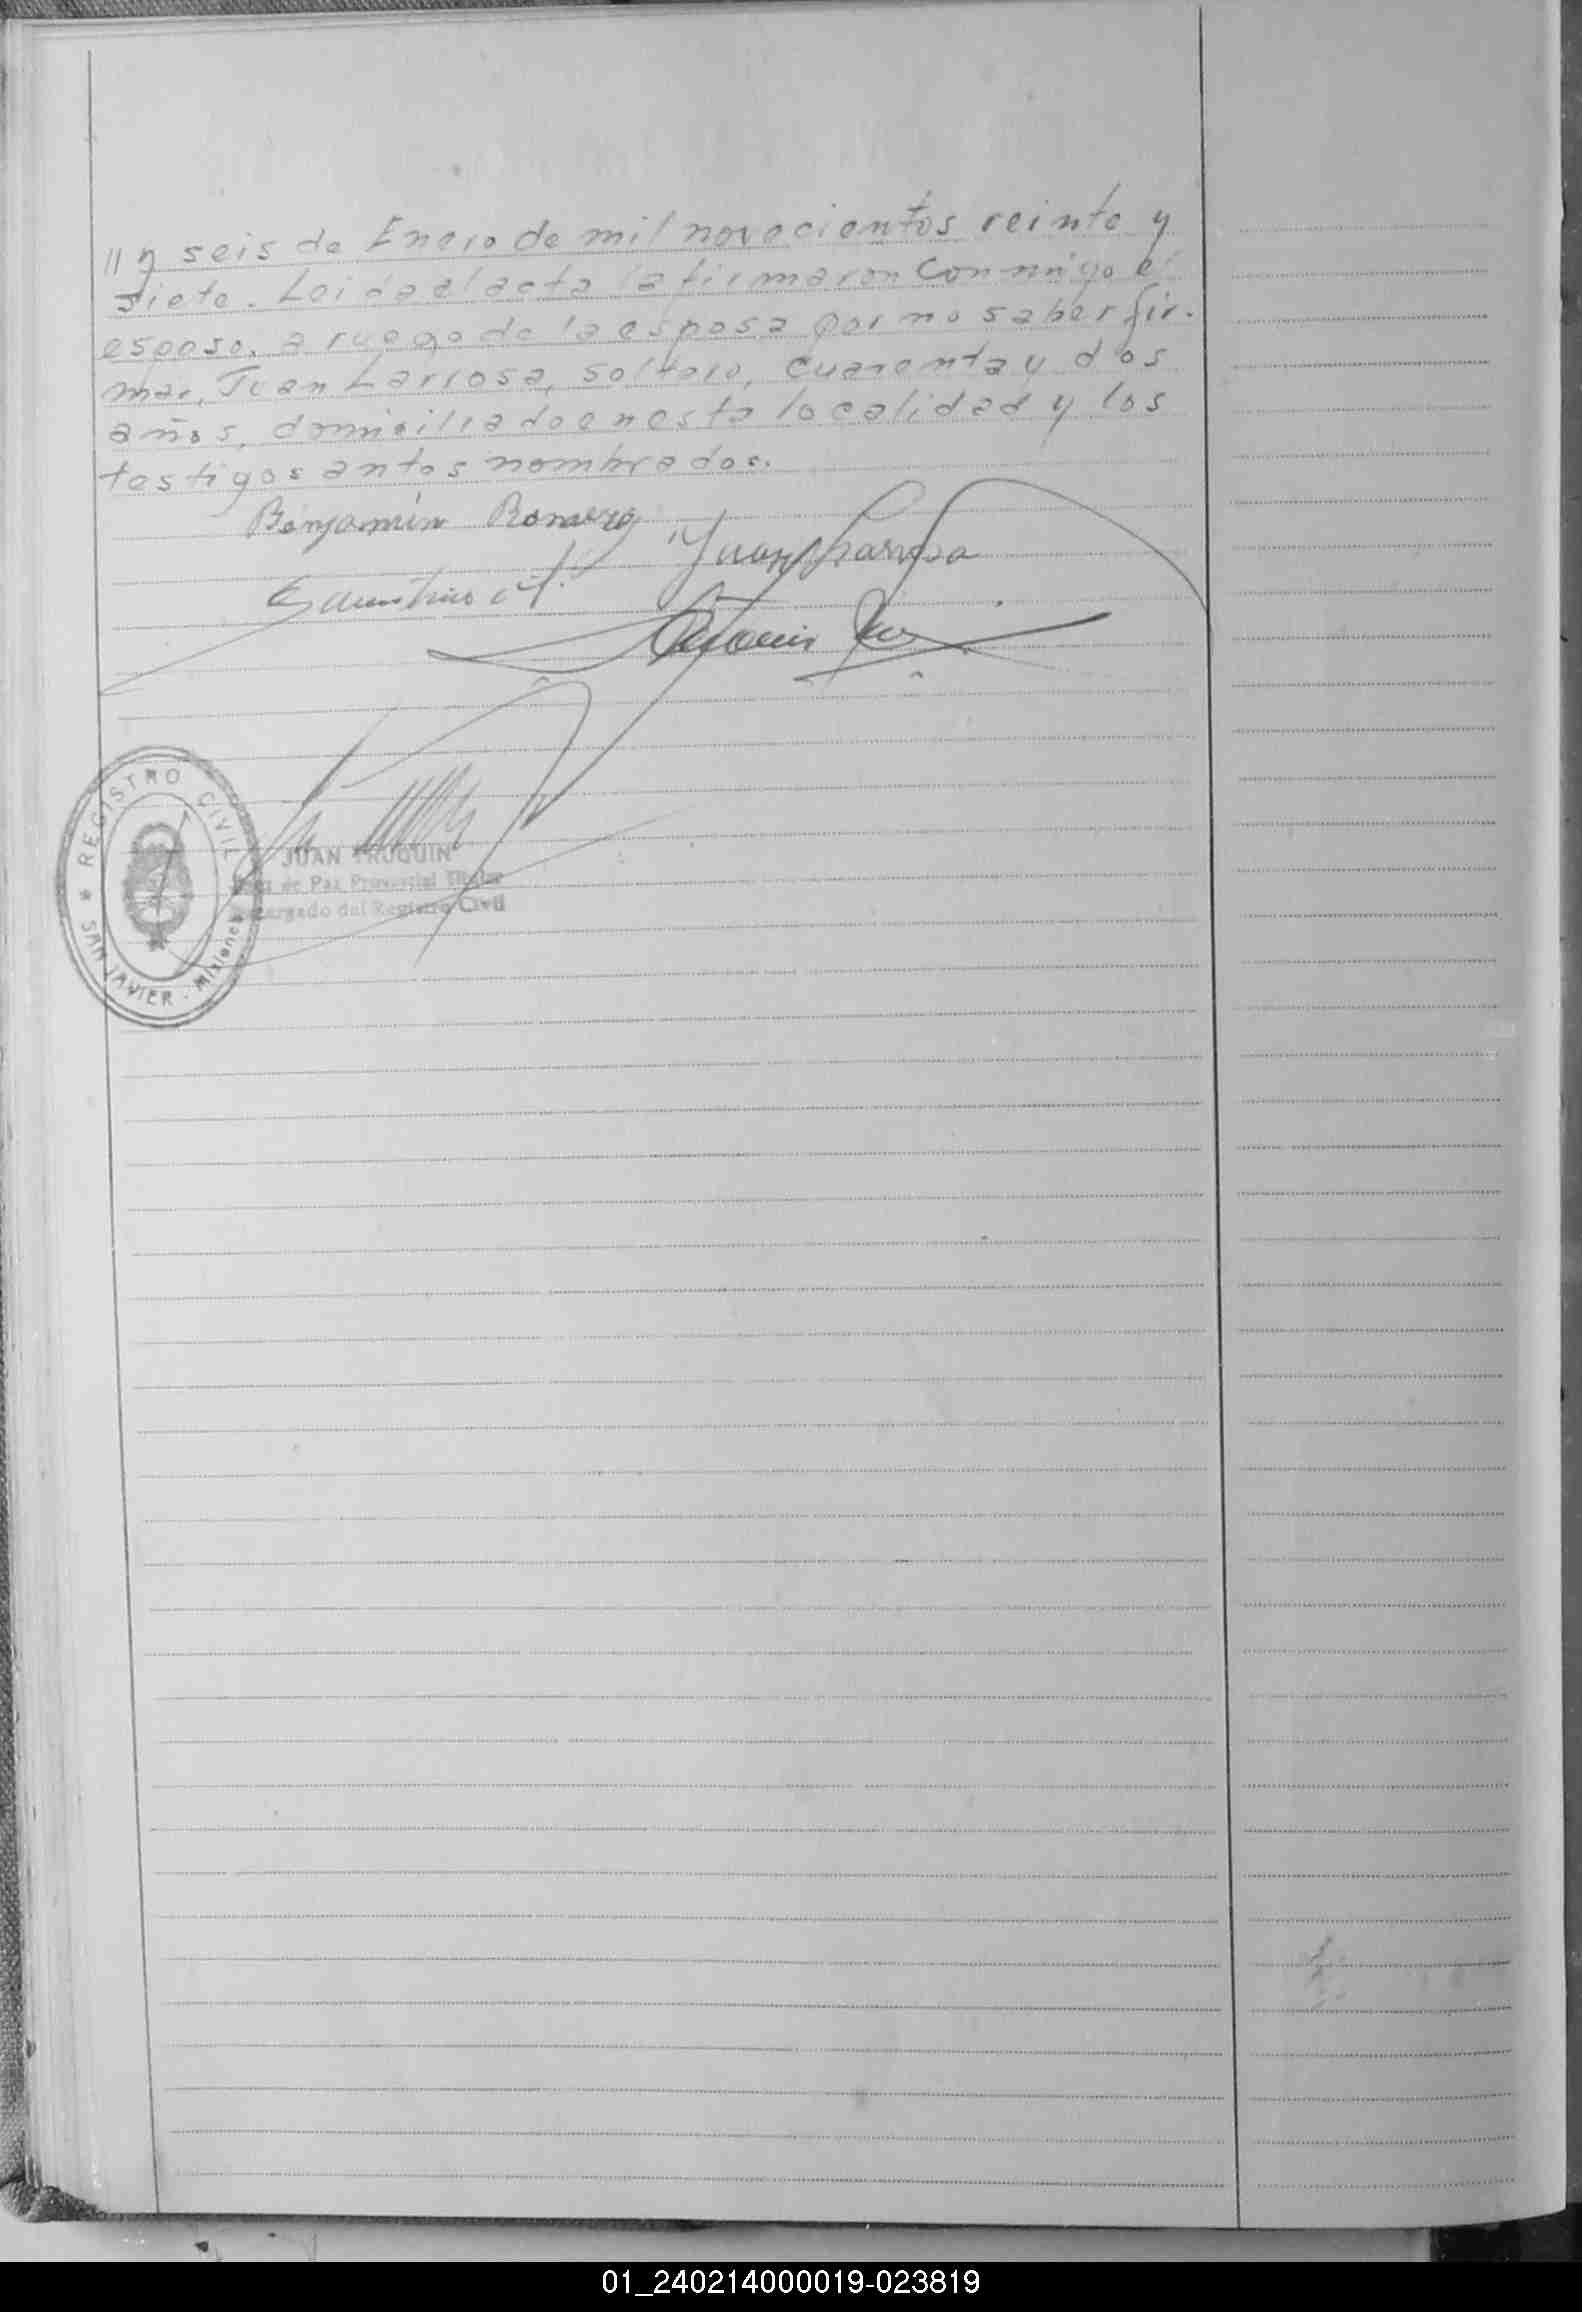 // y seis de Enero de mil novecientos veinte y
siete. Leida el acta la firmaron conmigo el
esposo, a ruego de la esposa por no saber fir-
mar, Juan Larrosa, soltero, cuarenta y dos
años, domiciliado en esta localidad y los
testigos antes nombrados.
Benjamín Romero
Juan Larrosa
REGISTRO CIVIL
SAN JAVIER - Misiones
JUAN TRUQUIN
Juez de Paz Provincial Titular
Encargado del Registro Civil
01_240214000019-023819